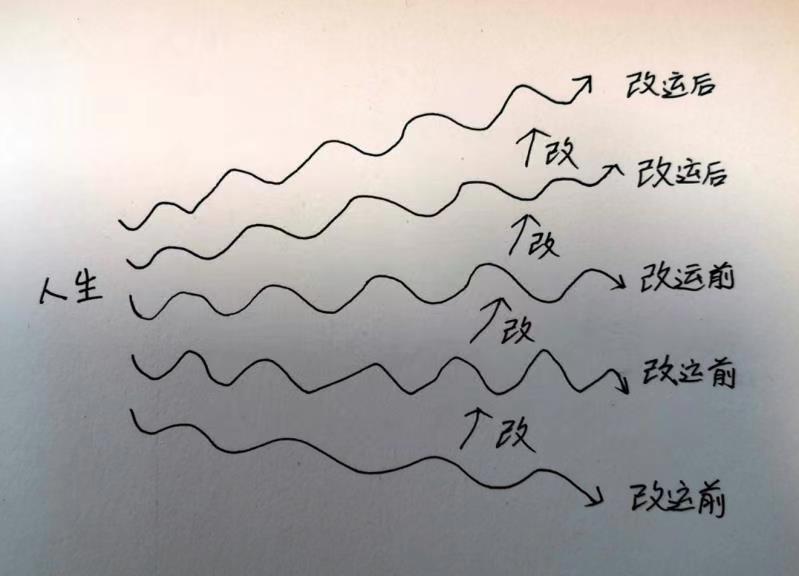 改运后
改
改运后
改
人生
改运前
改
改运前
改
改运前